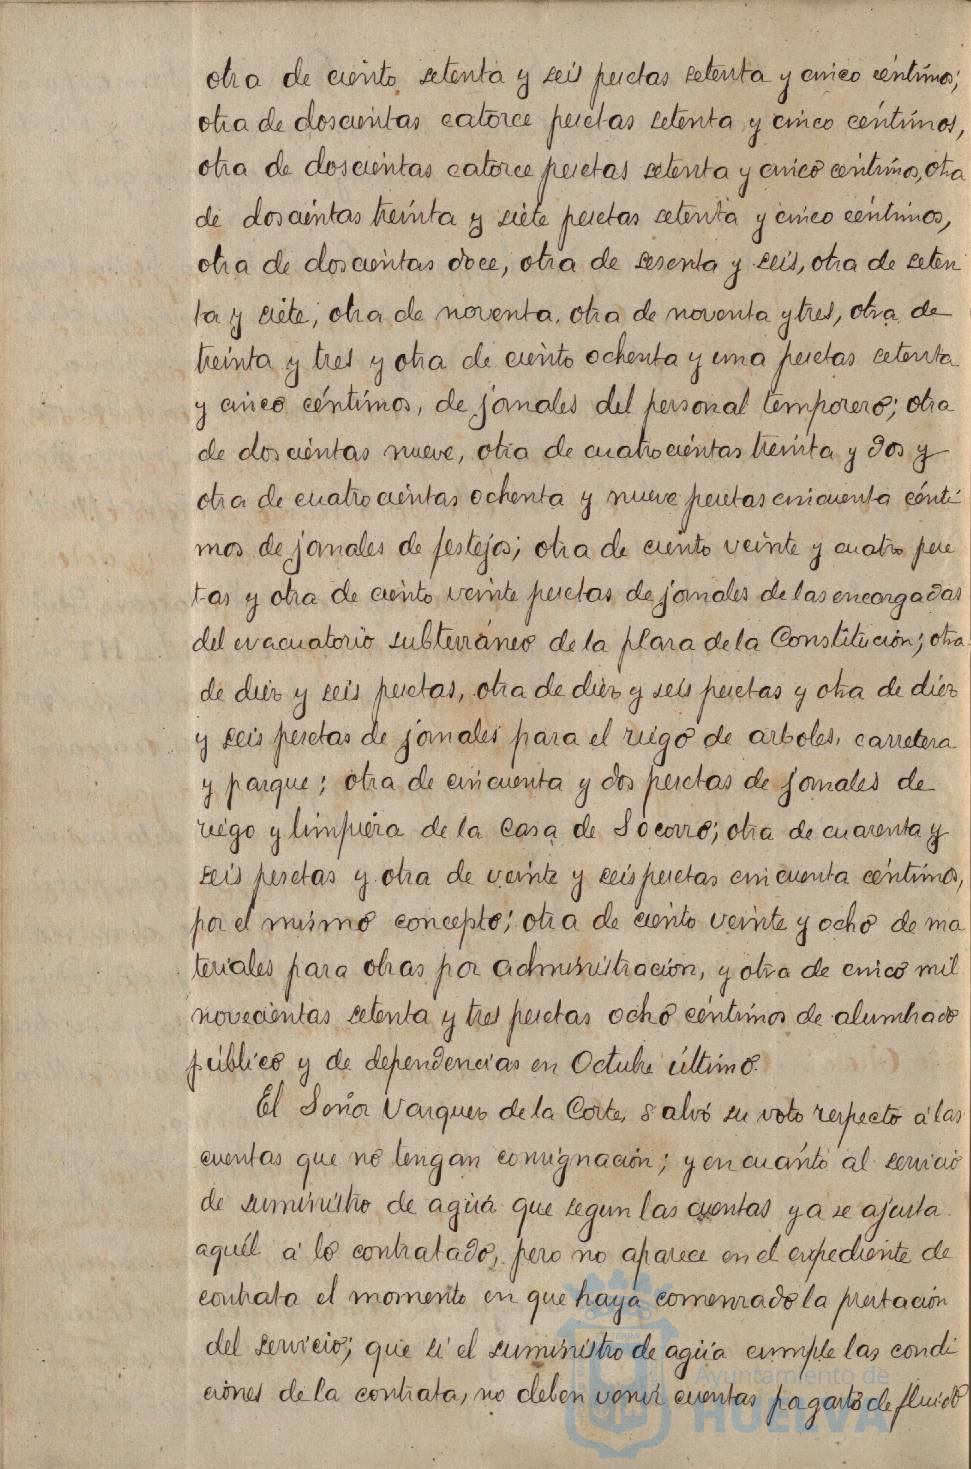 otra de ciento setenta y seis pesetas setenta y cinco céntimos;
otra de doscientas catorce pesetas setenta y cinco céntimos,
otra de doscientas catorce pesetas setenta y cinco centimos, otra
de doscientas treinta y siete pesetas setenta y cinco céntimos,
otra de doscientas doce, otra de sesenta y seis, otra de seten
ta y siete, otra de noventa, otra de noventa y tres, otra de
treinta y tres y otra de ciento ochenta y una pesetas setenta
y cinco céntimos, de jornales del personal temporero; otra
de doscientas nueve, otra de cuatrocientas treinta y dos y
otra de cuatrocientas ochenta y nueve pesetas cincuenta cénti
mos de jornales de festejos; otra de ciento veinte y cuatro pese
tas y otra de ciento veinte pesetas de jornales de las encargadas
del evacuatorio subterráneo de la plaza de la Constitución; otra
de diez y seis pesetas, otra de diez y seis pesetas y otra de diez
y seis pesetas de jornales para el riego de arboles, carretera
y parque; otra de cincuenta y dos pesetas de jornales de
riego y limpieza de la Casa de Socorro; otra de cuarenta y
seis pesetas y otra de veinte y seis pesetas cincuenta céntimos,
por el mismo concepto; otra de ciento veinte y ocho de ma
teriales para obras por administración, y otra de cinco mil
novecientas setenta y tres pesetas ocho céntimos de alumbrado
público y de dependencias en Octubre último.
El Señor Vazquez de la Corte, salvó su voto respecto á las
cuentas que no tengan consignación; y en cuánto al servicio
de suministro de agua que segun las cuentas ya se ajusta
aquél á lo contratado, pero no aparece en el expediente de
contrata el momento en que haya comenzado la prestación
del servicio; que si el suministro de agua cumple las condi
ciones de la contrata, no deben venir cuentas pagarto de fluido
Ayuntamiento de
HUELVA